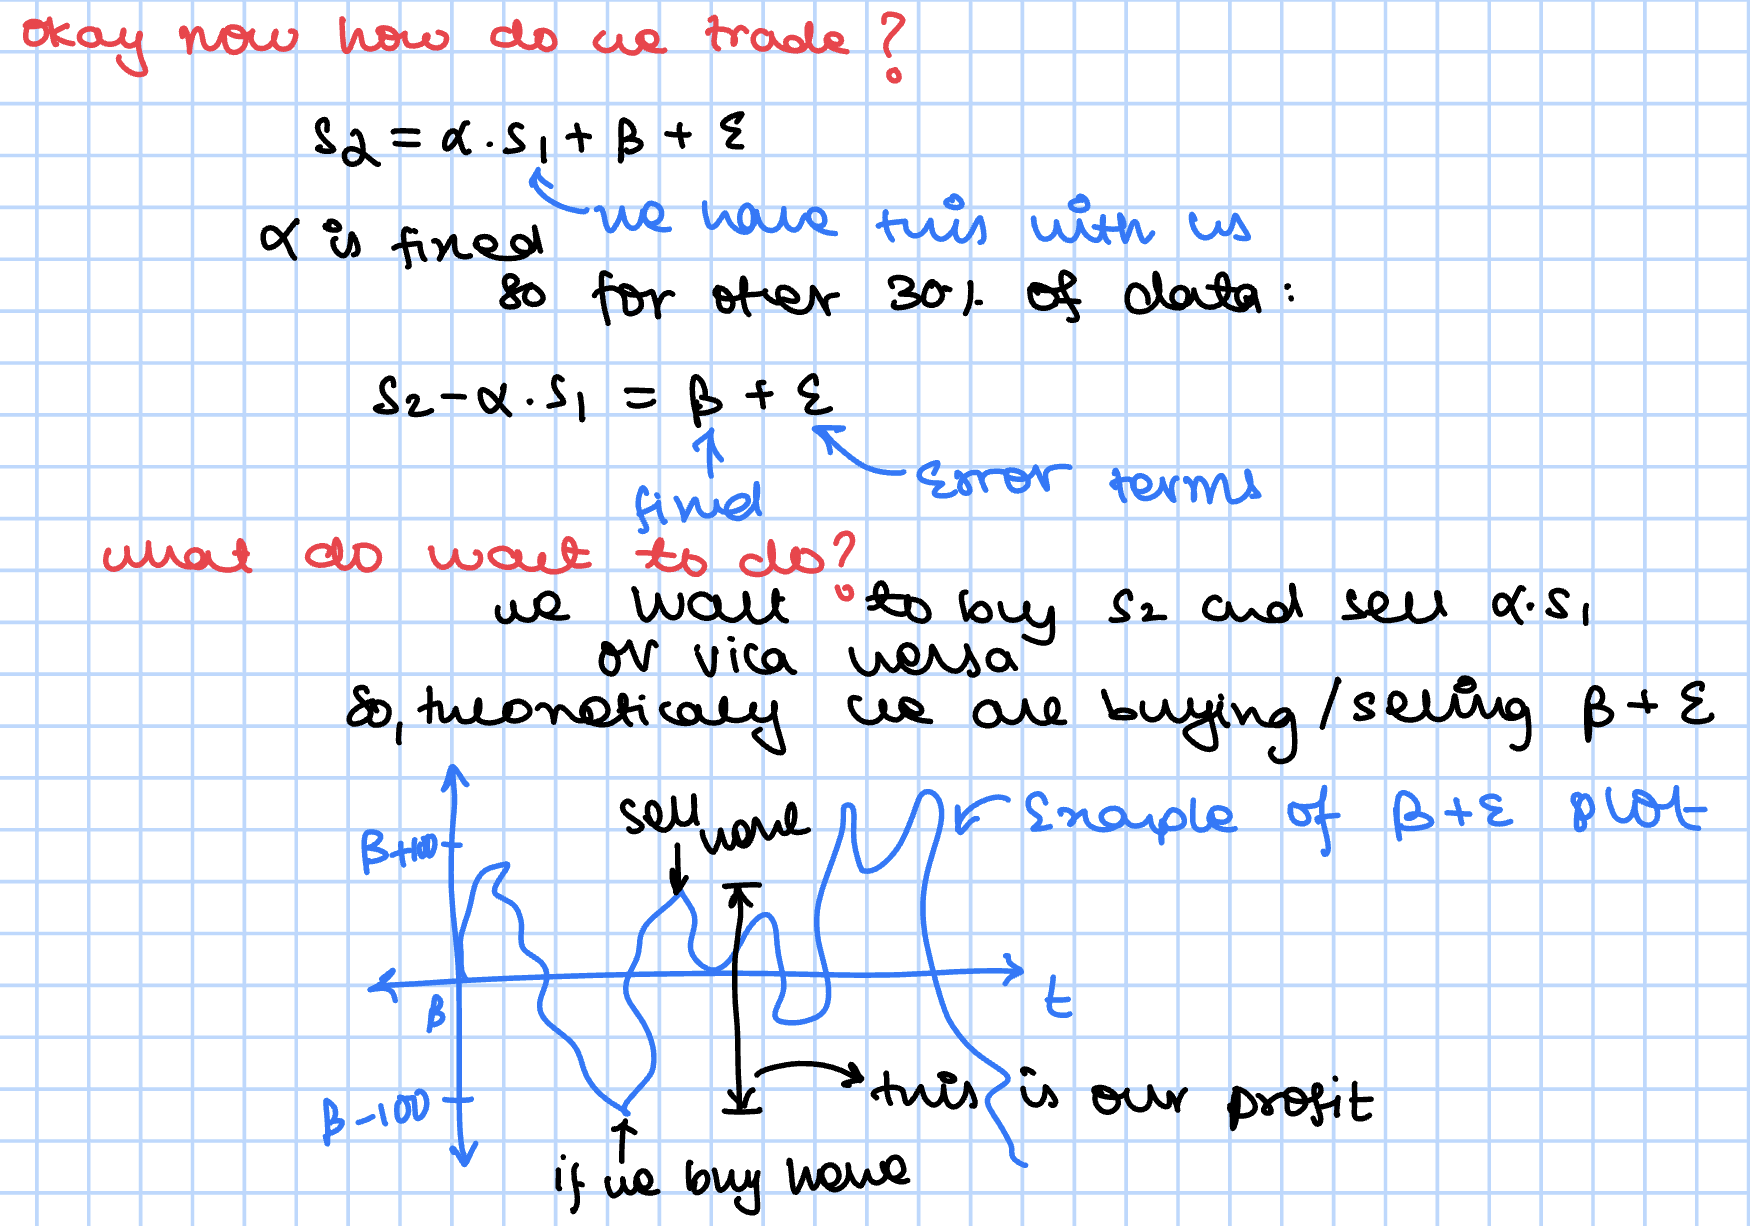 okay now how do we trade?
S2 = α.S1 + β + ε
we have this with us
α is fixed
so for other 30% of data:
S2 - α.S1 = β + ε
fixed
Error terms
what do want to do?
we want to buy S2 and sell α.S1
or vica versa
So, theoreticaly we are buying/selling β + ε
sell here
Example of β+ε plot
β+100
β
t
β-100
this is our profit
if we buy here